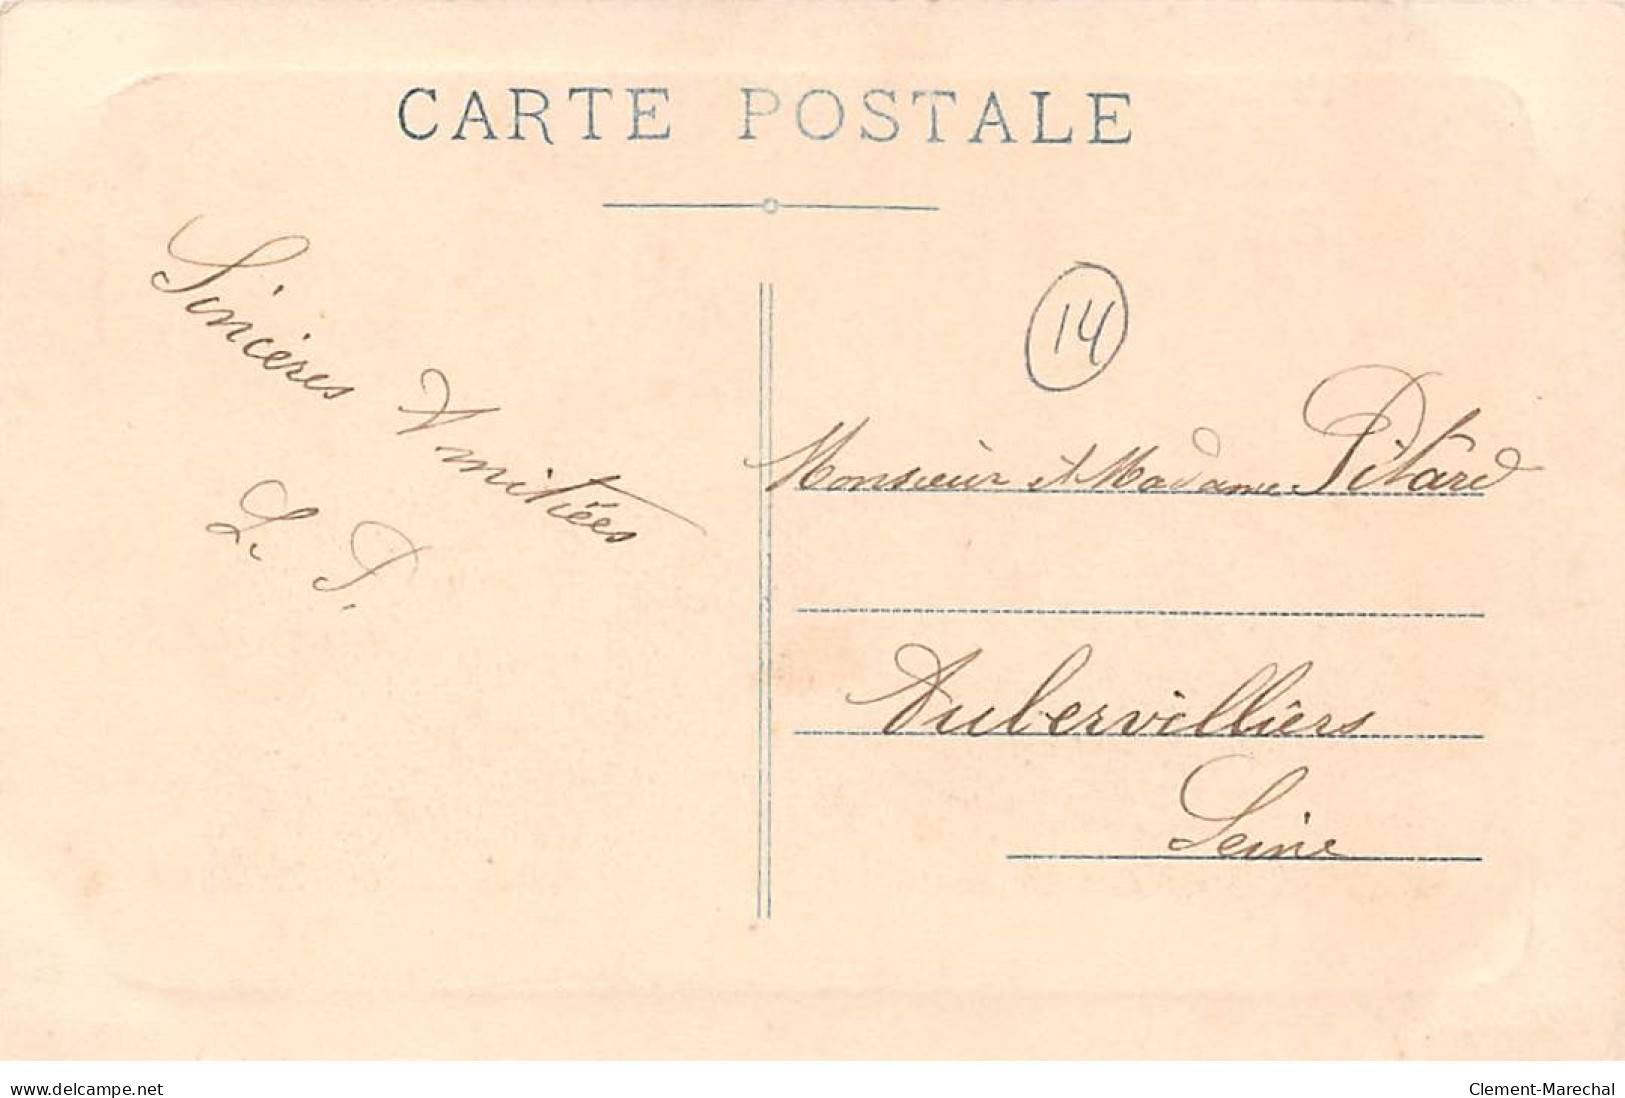 CARTE POSTALE
Sincères Amitiées
L. P.
14
Monsieur et Madame Pitard
Aubervilliers
Seine
www.delcampe.net
Clement-Marechal